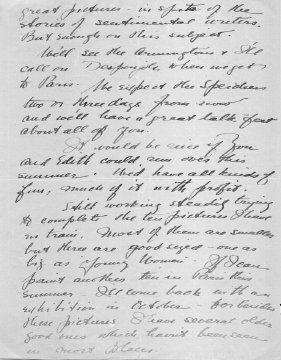 great pictures - in spite of the
stories of sentimental writers.
But enough on this subject.
Will see the Armingtons & I'll
call on when we get
to Paris. We expect the Speichers
two or three days from now
and we'll have a great talk fest
about all of you.
It would be nice if you
and Edith could run over this
summer. We'd have all kinds of
fun, much of it with profit.
Still working steadily trying
to complete the ten pictures I have
in train. Most of them are smaller
but three are good sized - one as
big as "Young Woman". If I can
paint another ten in Paris this
summer I'll come back with an
exhibition in October - for besides
these pictures I have several older
good ones which haven't been seen
in most places.